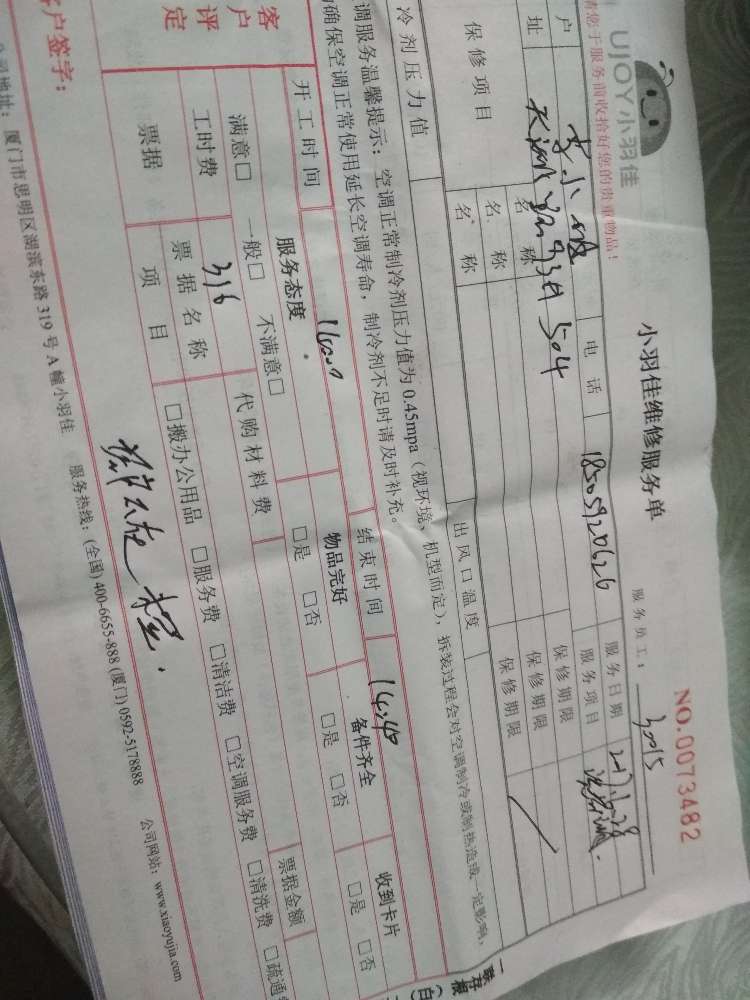 UJOY小羽佳
小羽佳维修服务单
NO.0073482
请您于服务前收拾好您的贵重物品！
服务员工：30015
户 李小 电话 18505920626 服务日期 2017
址 504 服务项目
保修项目 名称 保修期限
名称 保修期限
名称 保修期限
冷剂压力值 出风口温度
调服务温馨提示：空调正常制冷剂压力值为0.45mpa（视环境、机型而定），拆装过程会对空调制冷或制热造成一定影响，
确保空调正常使用延长空调寿命，制冷剂不足时请及时补充。
开工时间 结束时间 14:40
客户评定 服务态度 物品完好 备件齐全 收到卡片
满意□ 一般□ 不满意□ □是 □否 □是 □否 □是 □否
工时费 316 代购材料费
票据 票据名称 票据金额
项目 □搬办公用品 □服务费 □清洁费 □空调服务费 □清洗费 □疏通
客户签字：
公司地址：厦门市思明区湖滨东路319号A幢小羽佳 服务热线：(全国)400-6655-888 (厦门)0592-5178888 公司网站：www.xiaoyujia.com